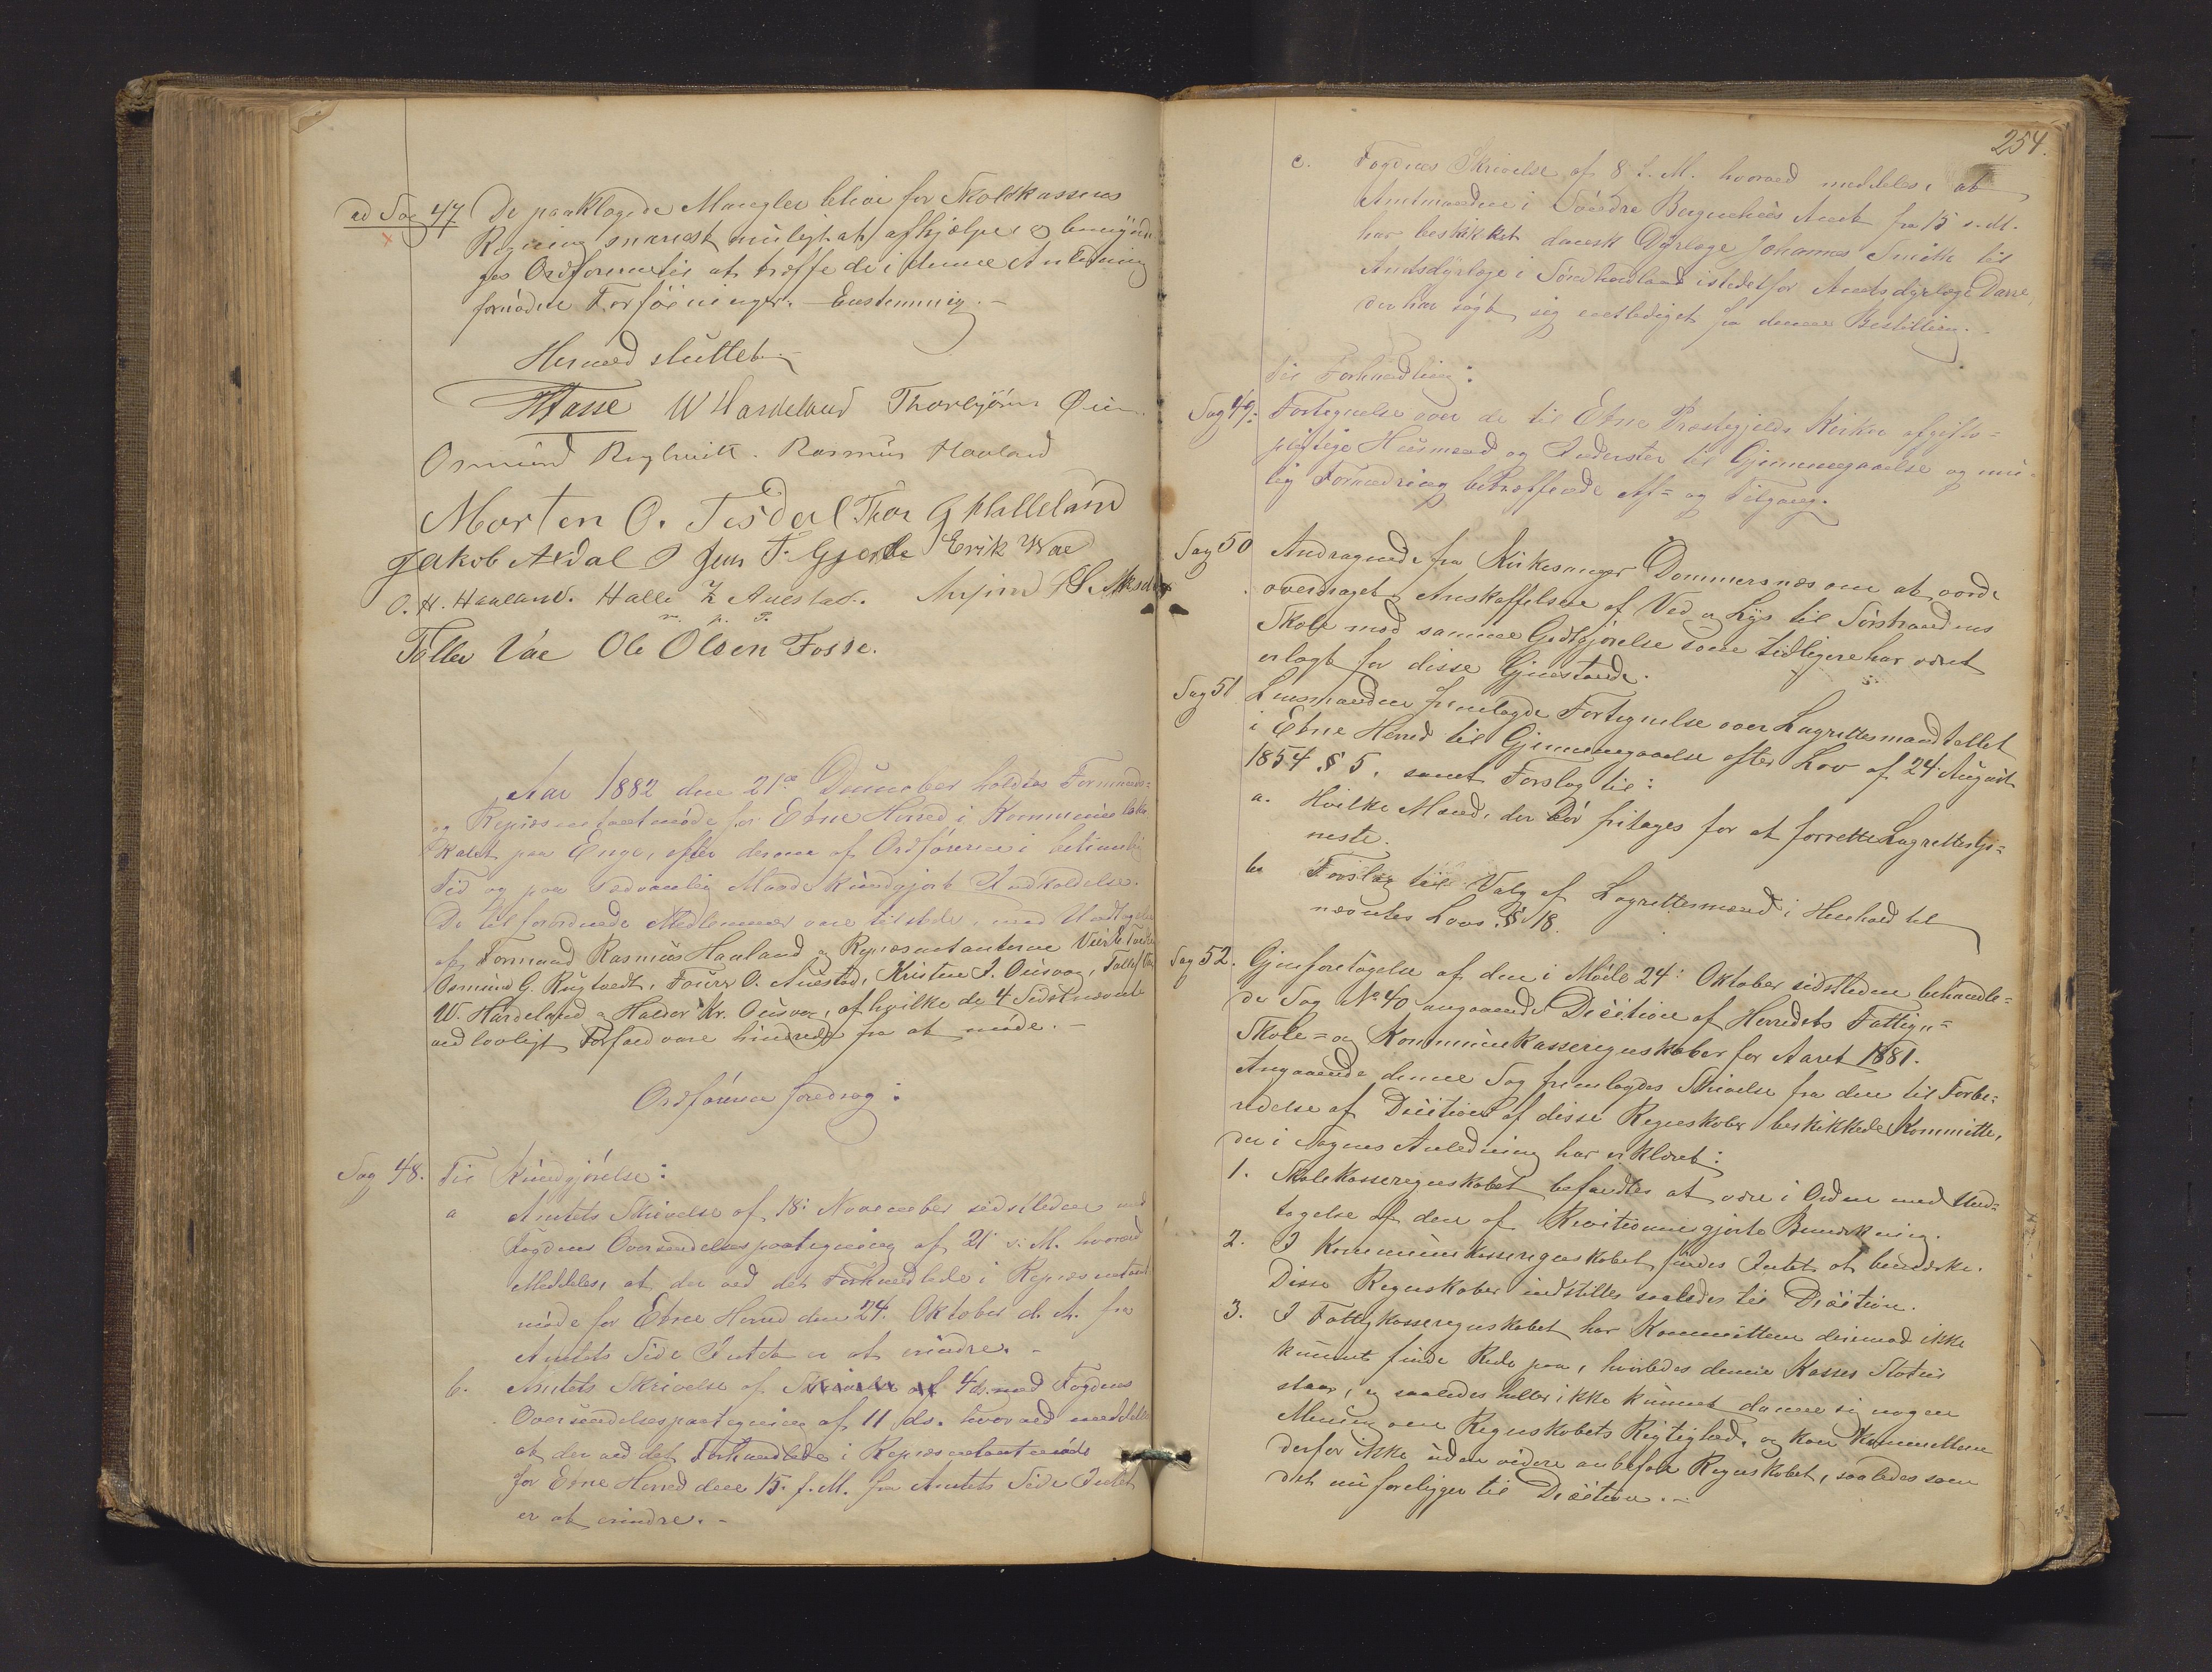 ad Sag 47 De paaklagede Mangler blive for Skolekassens
Regning snarest muligt at afhjælpe, og bemyndi-
ges Ordføreren til at træffe de i denne Anledning
fornødne Forføininger. Enstemmig.-
Hermed sluttet.
Hasse W Hardeland Thorbjörn Øien.
Osmund Rygtveitt. Rasmus Haaland
Morten O. Tesdal Thor G Halleland
Jakob Aldal Jens T. Gjerde Erik Wae
O. H. Haaland. Halle Z Auestad.
m. p. P.
Tollev Vae Ole Olsen Fosse.
Aar 1882 den 21de December holdtes Formands-
og Repræsentantmøde for Etne Herred i Kommunelo-
kalet paa Enge, efter derom af Ordføreren i betimelig
Tid og paa sædvanlig Maade kundgjort Indkaldelse.
De tilforordnede Medlemmer vare tilstede, med Undtagelse
af Formand Rasmus Haaland og Repræsentanterne
Osmund G. Rygtvedt, Tourr O. Auestad, Kristen J. Ousvog, Tollef Vae
W. Hardeland og Haldor Kr. Ousvog, af hvilke de 4 Sidstnævnte
ved lovligt Forfald vare hindrede fra at møde.-
Ordføreren foredrog:
Sag 48. Til Kundgjørelse:
a Amtets Skrivelse af 18: November sidstleden med
Fogdens Oversendelsespaategning af 21 s. M. hvorved
Meddeles, at der ved det Forhandlede i Repræsentant-
møde for Etne Herred den 24. Oktober d. A. fra
Amtets Side Intet er at erindre.-
b. Amtets Skrivelse af Skrivelse af 4 ds. med Fogdens
Oversendelsespaategning af 11 ds. hvorved meddeles
at der ved det Forhandlede i Repræsentantmøde
for Etne Herred den 15. f. M. fra Amtets Side Intet
er at erindre.-
254.
c. Fogdens Skrivelse af 8 d. M. hvorved meddeles, at
Amtmanden i Søndre Bergenhus Amt fra 15 s. M.
har beskikket dansk Dyrlæge Johannes Smith til
Amtsdyrlæge i Søndhordland istedetfor Amtsdyrlæge Dane,
der har søgt sig entlediget fra denne Bestilling.
Til Forhandling:
Sag 49: Fortegnelse over de til Etne Præstegjelds Kirker afgifts-
pligtige Husmænd og Inderster til Gjennemgaaelse og mu-
lig Forandring betræffende Af- og Tilgang.
Sag 50 Andragende fra Kirkesanger Dommersnæs om at vorde
overdraget Anskaffelsen af Ved og Lys til Sørstrandens
Skole mod samme Godtgjørelse som tidligere har været
erlagt for disse Gjenstande.
Sag 51 Lensmanden fremlagde Fortegnelse over Lagrettesmandtallet
i Etne Herred til Gjennemgaaelse efter Lov af 24 August
1854 § 5, samt Forslag til:
a. Hvilke Mænd, der bør fritages for at forrette Lagrettestje-
neste.
b. Forslag til Valg af Lagrettesmænd i Henhold til
nævntes Lovs § 18.
Sag 52. Gjenforetagelse af den i Møde 24: Oktober sidstleden behandle-
de Sag No 40 angaaende Decition af Herredets Fattig-
Skole- og Kommunekasseregnskaber for Aaret 1881.
Angaaende denne Sag fremlagdes Skrivelse fra den til Forbe-
redelse af Decition af disse Regnskaber beskikkede Kommitte,
der i Sagens Anledning har erklæret:
1. Skolekasseregnskabet befandtes at være i Orden med Und-
tagelse af den af Revisionen gjorte Bemærkning.
2. I Kommunekasseregnskabet findes Intet at bemærke.
Disse Regnskaber indstilles saaledes til Decition.
3. I Fattigkasseregnskabet har Kommitteen derimod ikke
kunnet finde Rede paa, hvorledes denne Kasses Status
staar, og saaledes heller ikke kunnet danne sig nogen
Mening om Regnskabets Rigtighed, og kan Kommitteen
derfor ikke uden videre anbefale Regnskabet, saaledes som
det nu foreligger til Decition.-